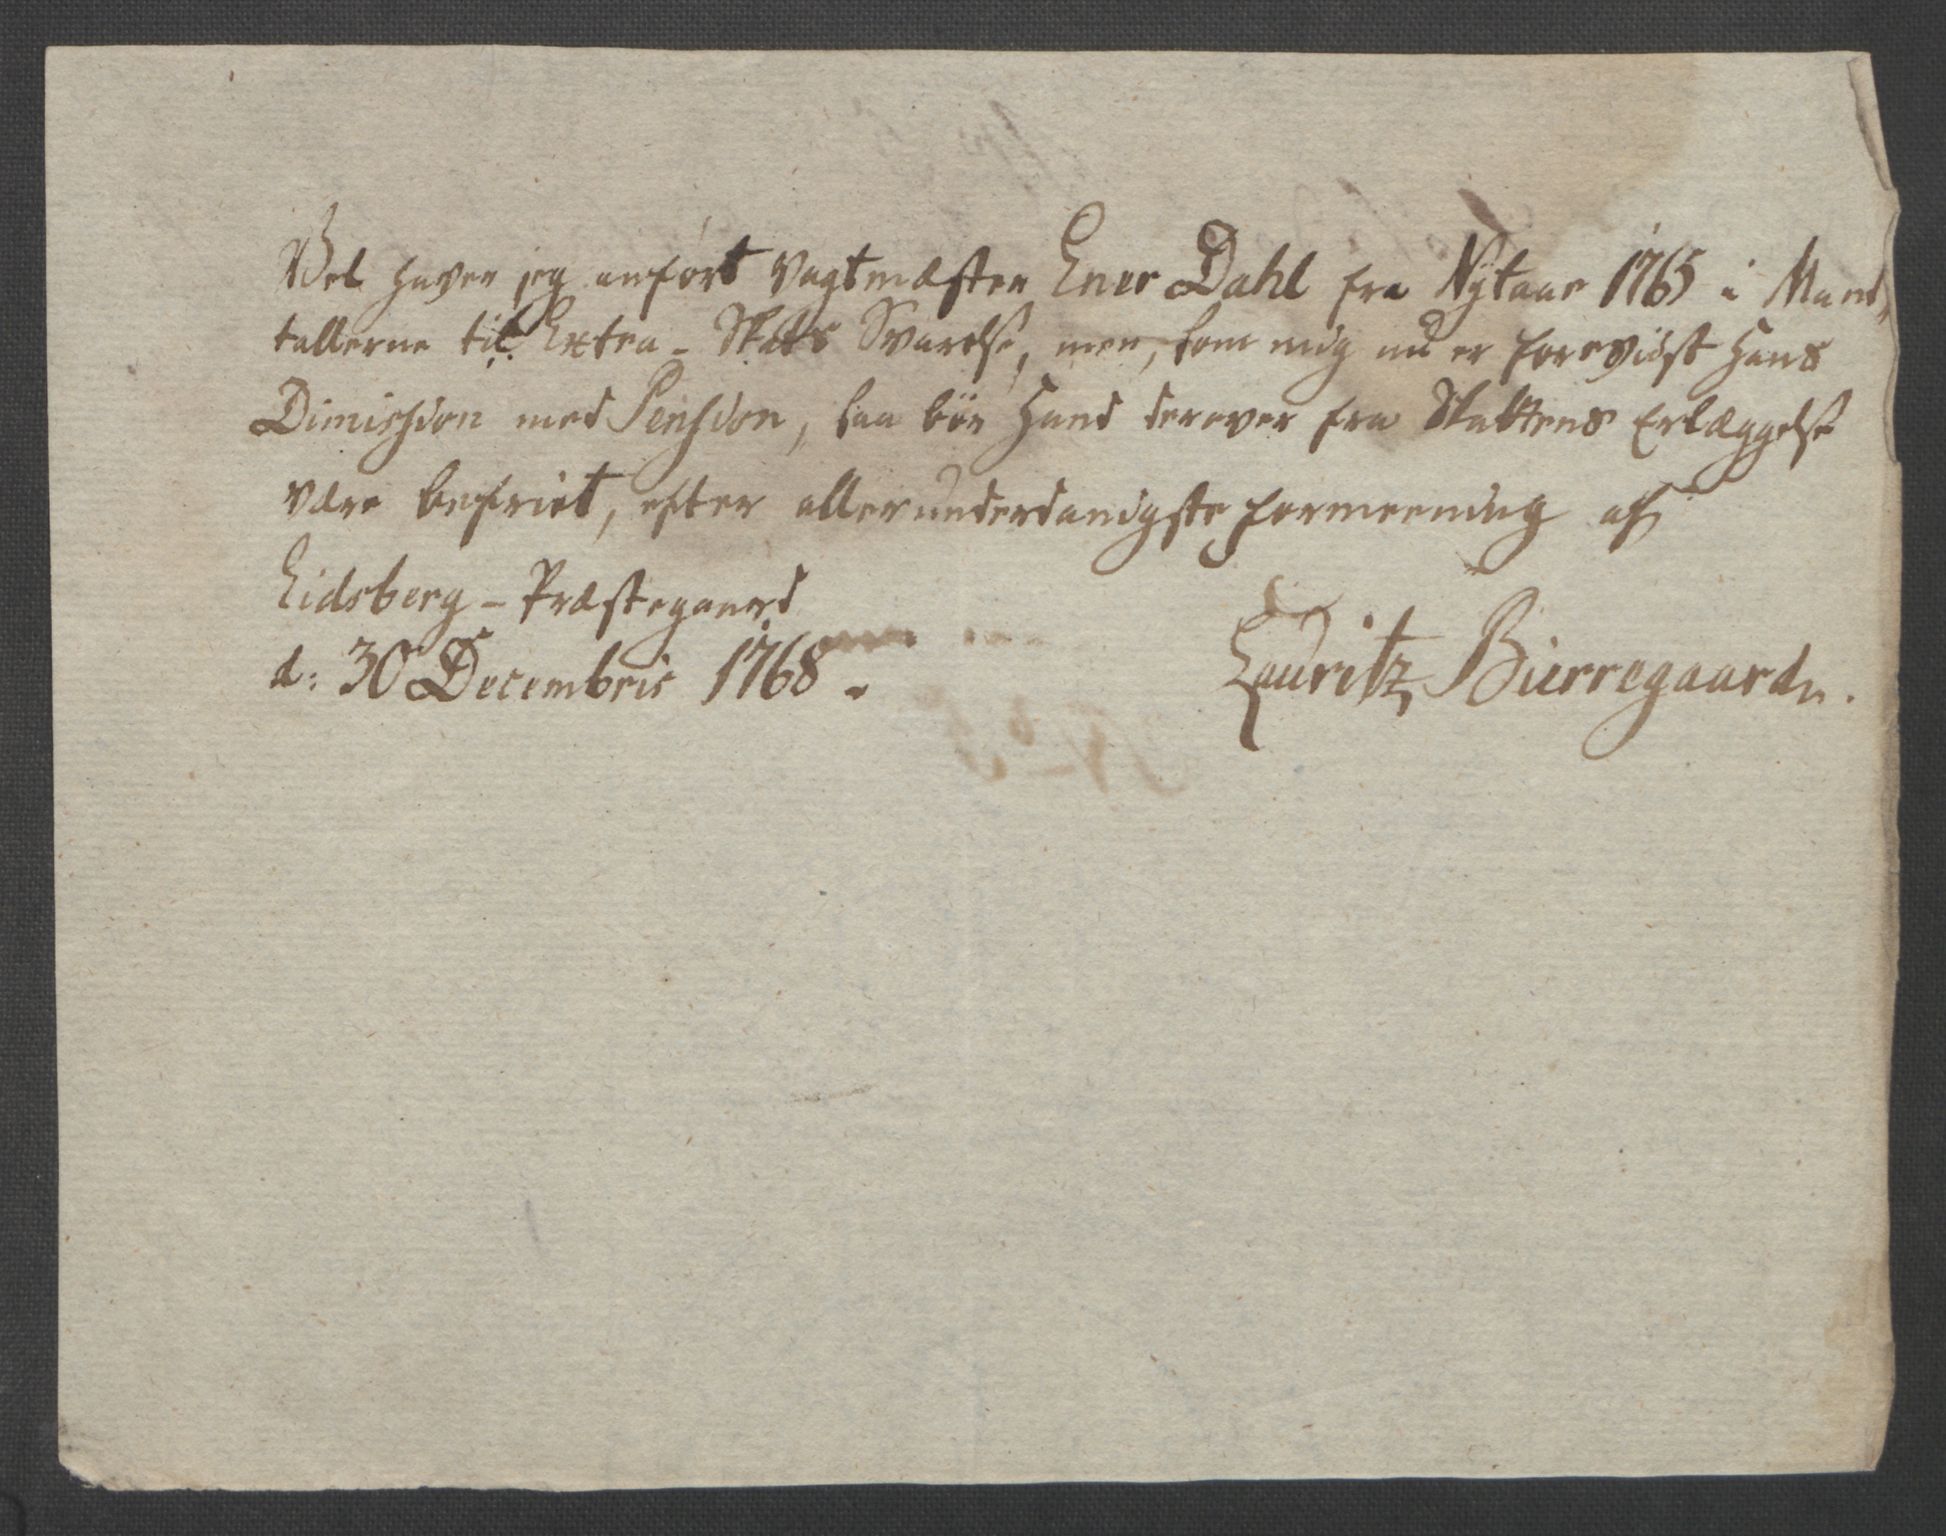 Vel haver jeg anført Vagtmæster Ener Dahl fra Nytaar 1765 i Mand„
tallerne til Extra-Skats Svarelse, men, som mig nu er foreviist Hans
Dimission med Pension, saa bør Hand derover fra Skattens Erlæggelse
være befriet, efter allerunderdanigste formeening af
Eidsberg-Præstegaard
d: 30 Decembris 1768.
Lauritz Bierregaard.